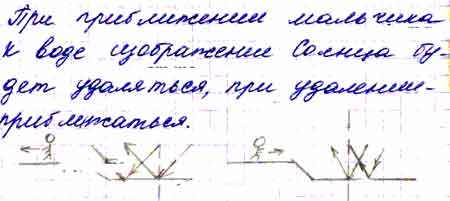 При приближении мальчика
к воде изображение Солнца бу-
дет удаляться, при удалении-
приближаться.